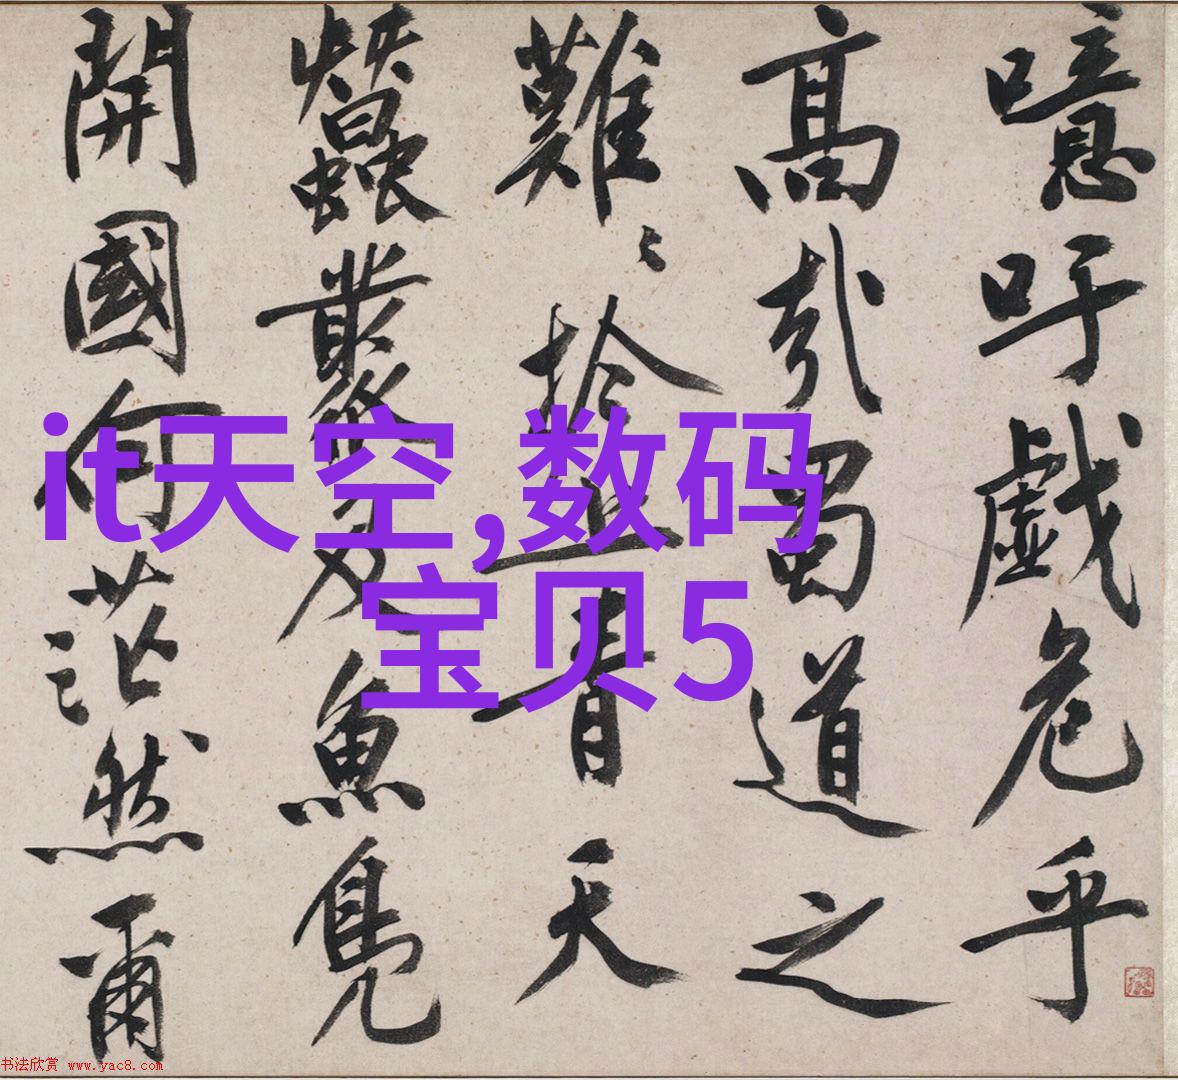 噫吁戯危乎
高哉蜀道之
難〻扵上青天
蠶叢及魚鳧
開國何茫然爾
it天空,数码
宝贝5
书法欣赏 www.yac8.com